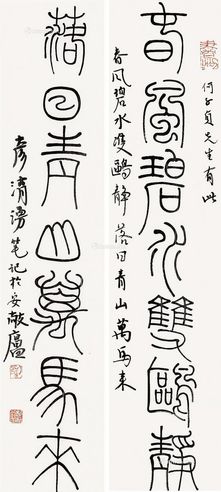 何子貞先生有此
春風碧水雙鷗靜
春风碧水雙鷗静落日青山萬馬来
落日青山萬馬來
清湧笔记於安敲廬